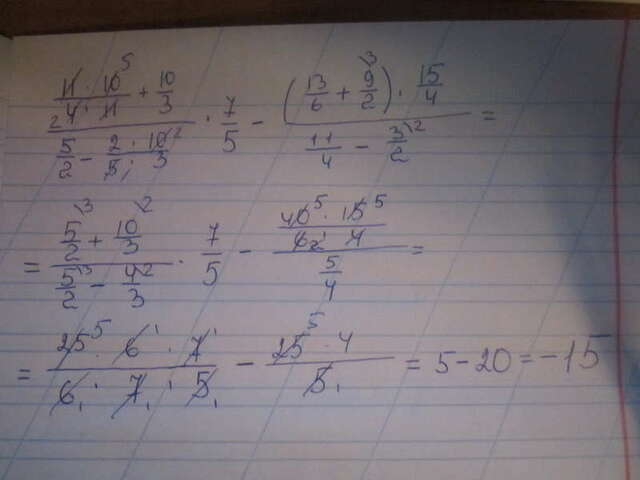 (11 · 10^5)/(2 4 · 11) + 10/3 / 5/2 − (2 · 10^2)/(5 · 3) · 7/5 − (13/6 + 9^3/2) · 15/4 / 11/4 − 3^2/2 =
= 5^3/2 + 10^2/3 / 5^3/2 − 4^2/3 · 7/5 − (40^5 · 15^5)/(6 2 · 4) / 5/4 =
= (25^5 · 6^1 · 7^1)/(6 1 · 7 1 · 5 1) − (25^5 · 4)/(5 1) = 5 − 20 = −15